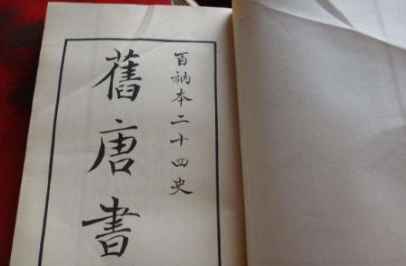 百衲本二十四史
舊唐書